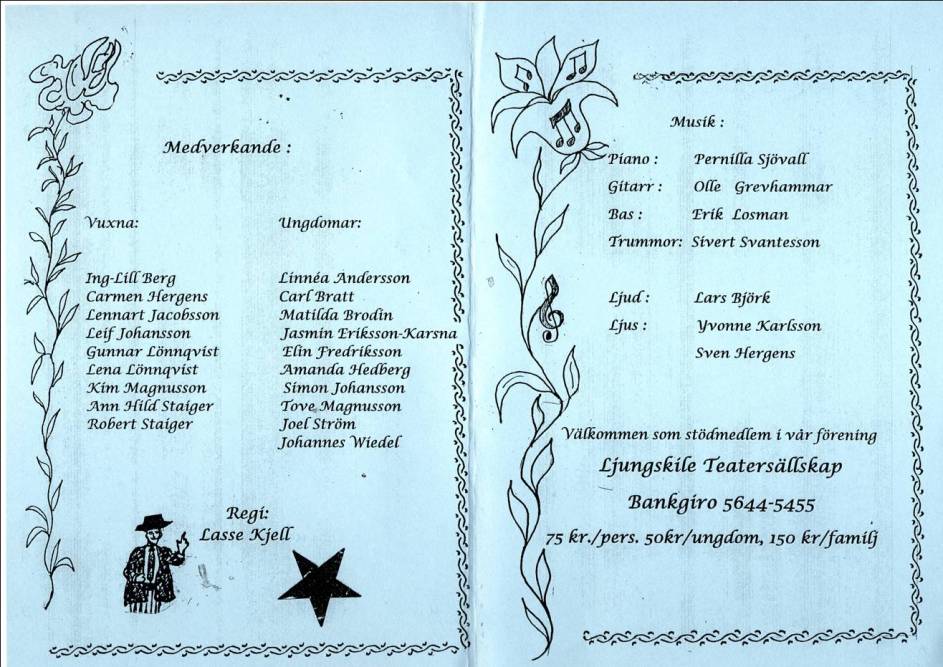 Medverkande :
Vuxna:
Ing-Lill Berg
Carmen Hergens
Lennart Jacobsson
Leif Johansson
Gunnar Lönnqvist
Lena Lönnqvist
Kim Magnusson
Ann Hild Staiger
Robert Staiger
Ungdomar:
Linnéa Andersson
Carl Bratt
Matilda Brodin
Jasmin Eriksson-Karsna
Elin Fredriksson
Amanda Hedberg
Simon Johansson
Tove Magnusson
Joel Ström
Johannes Wiedel
Regi:
Lasse Kjell
Musik :
Piano : Pernilla Sjövall
Gitarr : Olle Grevhammar
Bas : Erik Losman
Trummor: Sivert Svantesson
Ljud : Lars Björk
Ljus : Yvonne Karlsson
Sven Hergens
Välkommen som stödmedlem i vår förening
Ljungskile Teatersällskap
Bankgiro 5644-5455
75 kr./pers. 50kr/ungdom, 150 kr/familj